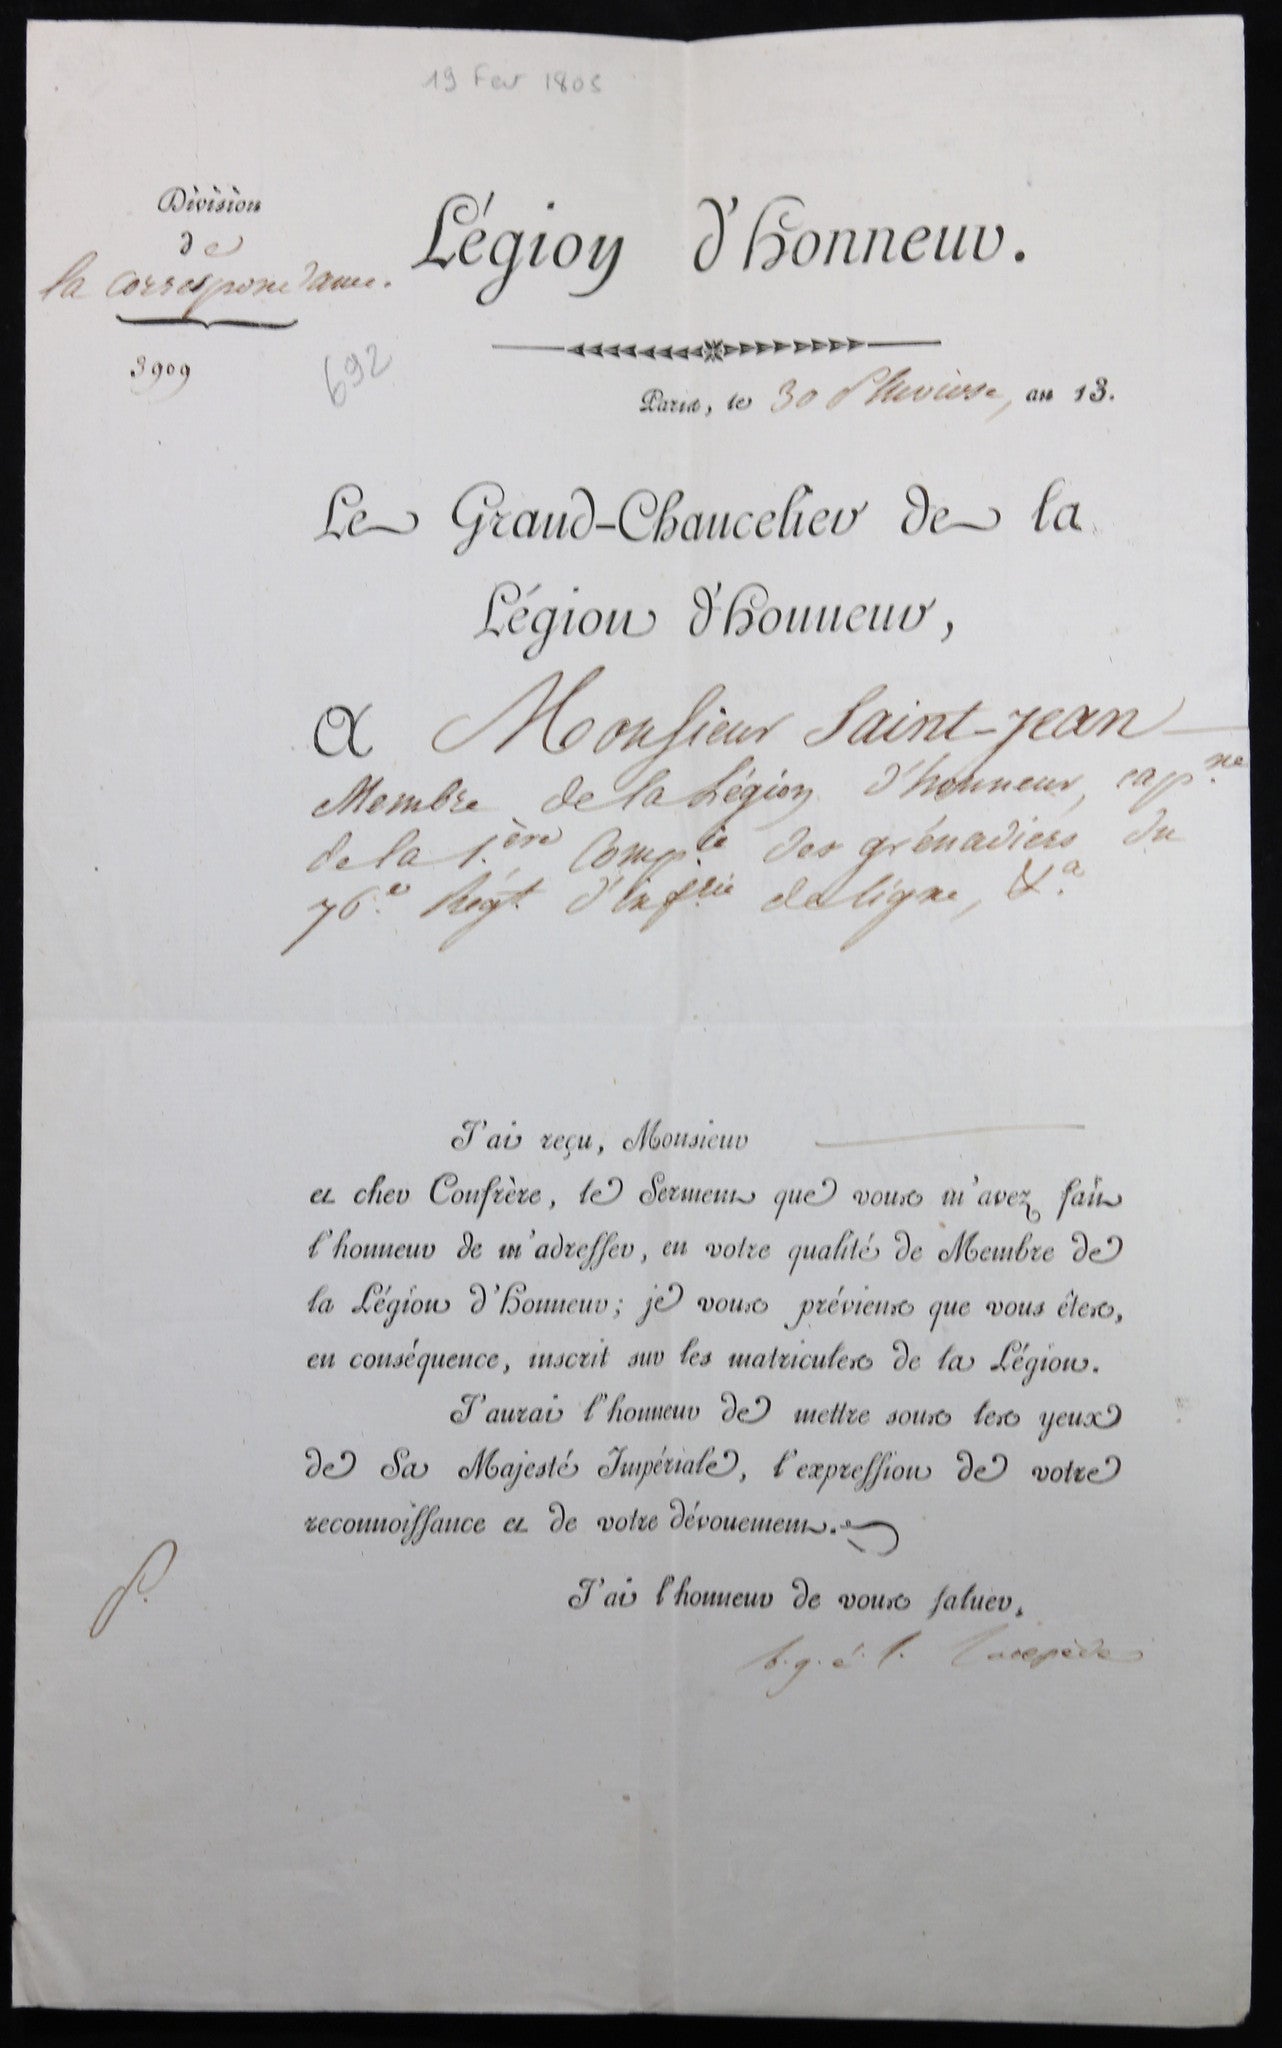 19 Fev 1805
Division
de
la correspondance.
3909
692
Légion d'honneur.
Paris, le 30 Pluviose, an 13.
Le Grand-Chancelier de la
Légion d'honneur,
A Monsieur Saint-Jean
Membre de la Légion d'honneur, cap.ne
de la 1.ère Comp.ie des grénadiers du
76.e Régt. d'inf.rie de ligne, &.a
J'ai reçu, Monsieur
et cher Confrère, le Serment que vous m'avez fait
l'honneur de m'adresser, en votre qualité de Membre de
la Légion d'Honneur; je vous préviens que vous êtes,
en conséquence, inscrit sur les matricules de la Légion.
J'aurai l'honneur de mettre sous les yeux
de Sa Majesté Impériale, l'expression de votre
reconnoissance et de votre dévouement.
J'ai l'honneur de vous saluer.
b. g. é. l. Lacepède
P.